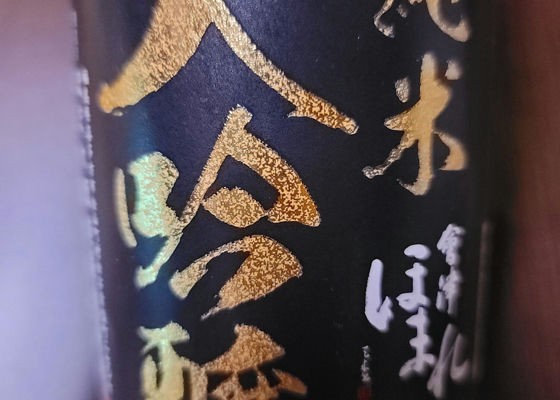 純米
會津
ほまれ
大吟醸